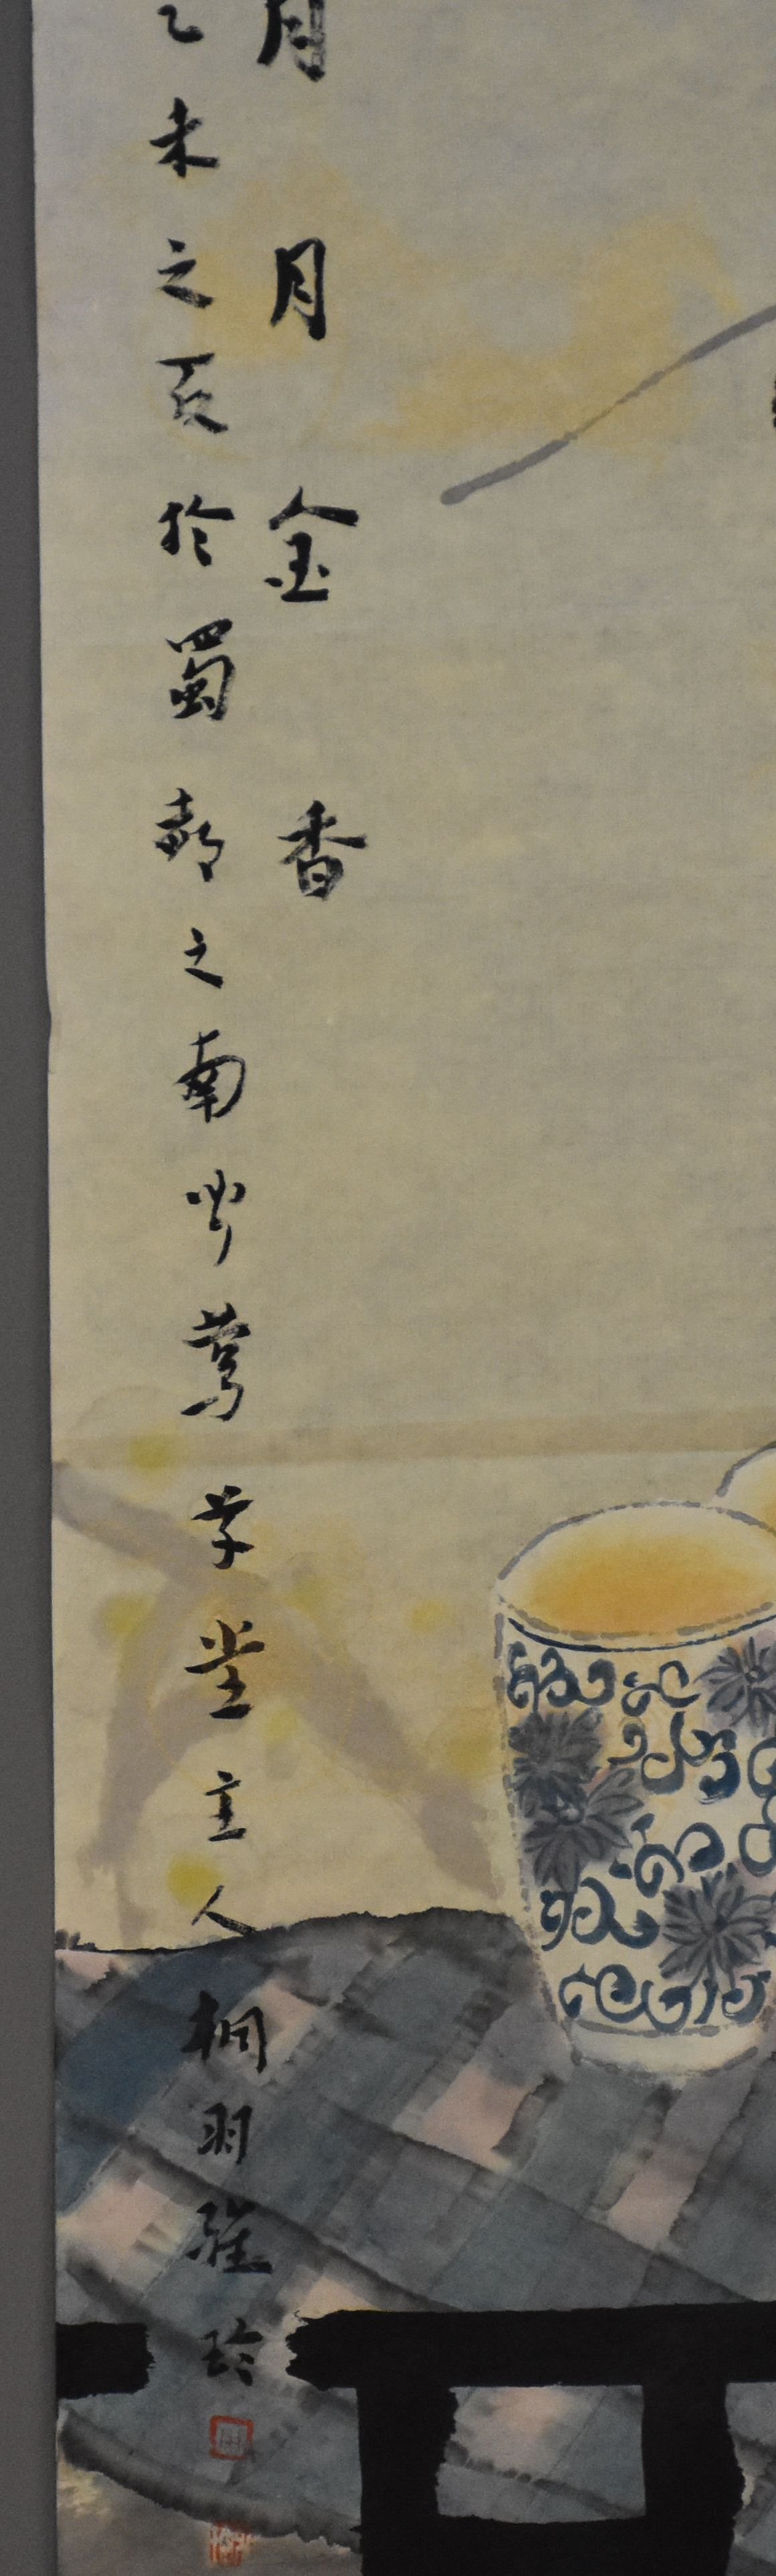 月月金香
乙未之夏於蜀都之南聞鶯草堂主人桐羽雅玲